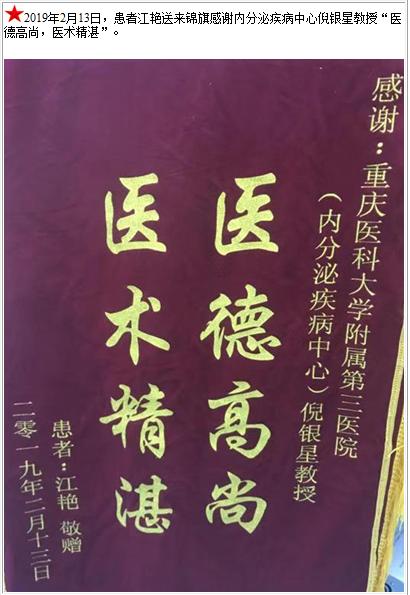 2019年2月13日，患者江艳送来锦旗感谢内分泌疾病中心倪银星教授“医
德高尚，医术精湛”。
感谢：重庆医科大学附属第三医院
（内分泌疾病中心）倪银星教授
医德高尚
医术精湛
患者：江艳 敬赠
二零一九年二月十三日